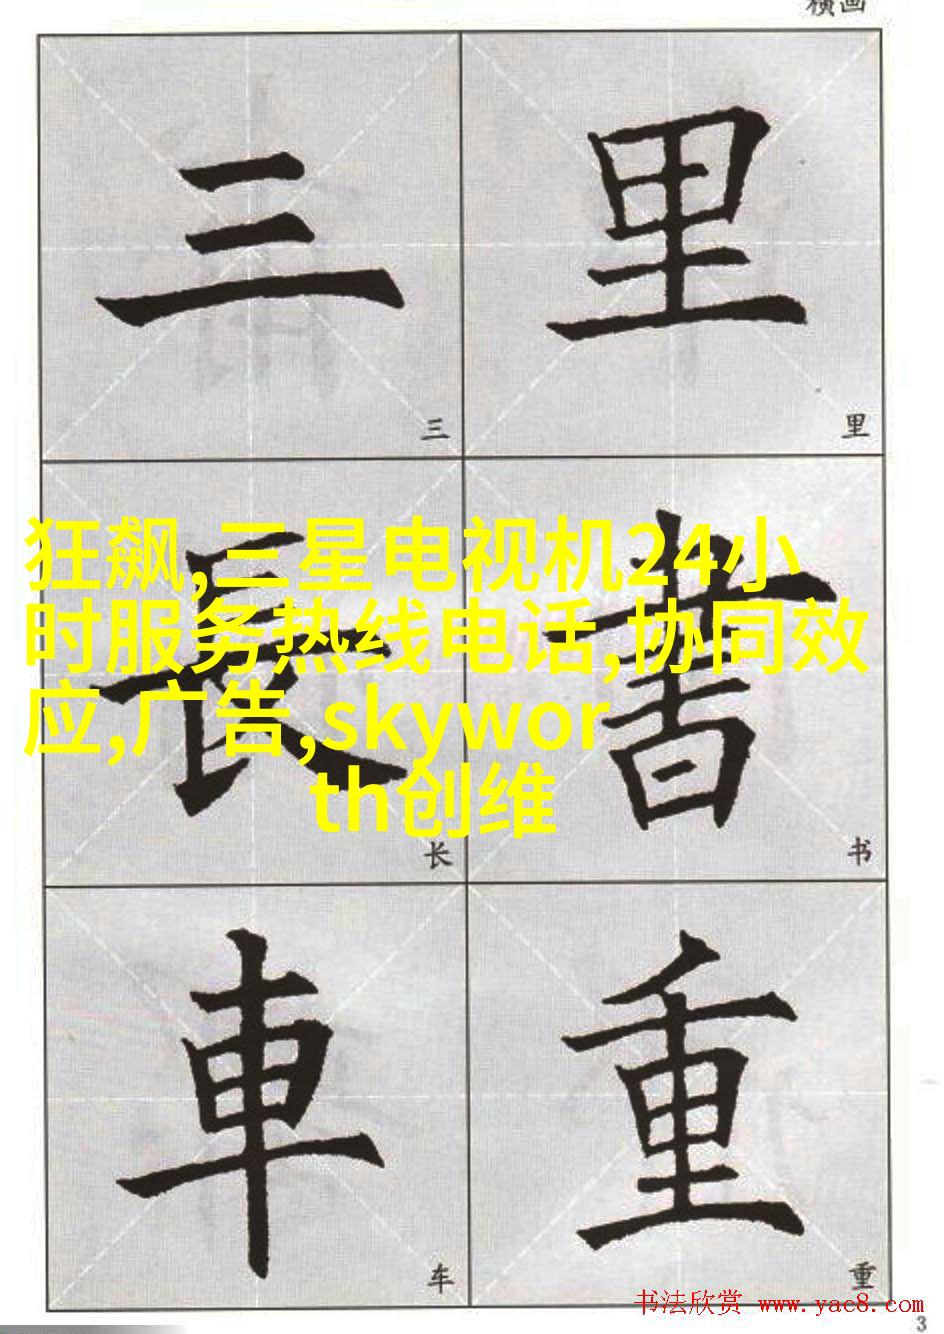 横画
三 里
三 里
狂飙,三星电视机24小
时服务热线电话,协同效
应,广告,skywor
th创维
長 書
长 书
車 重
车 重
书法欣赏 www.yac8.com
3